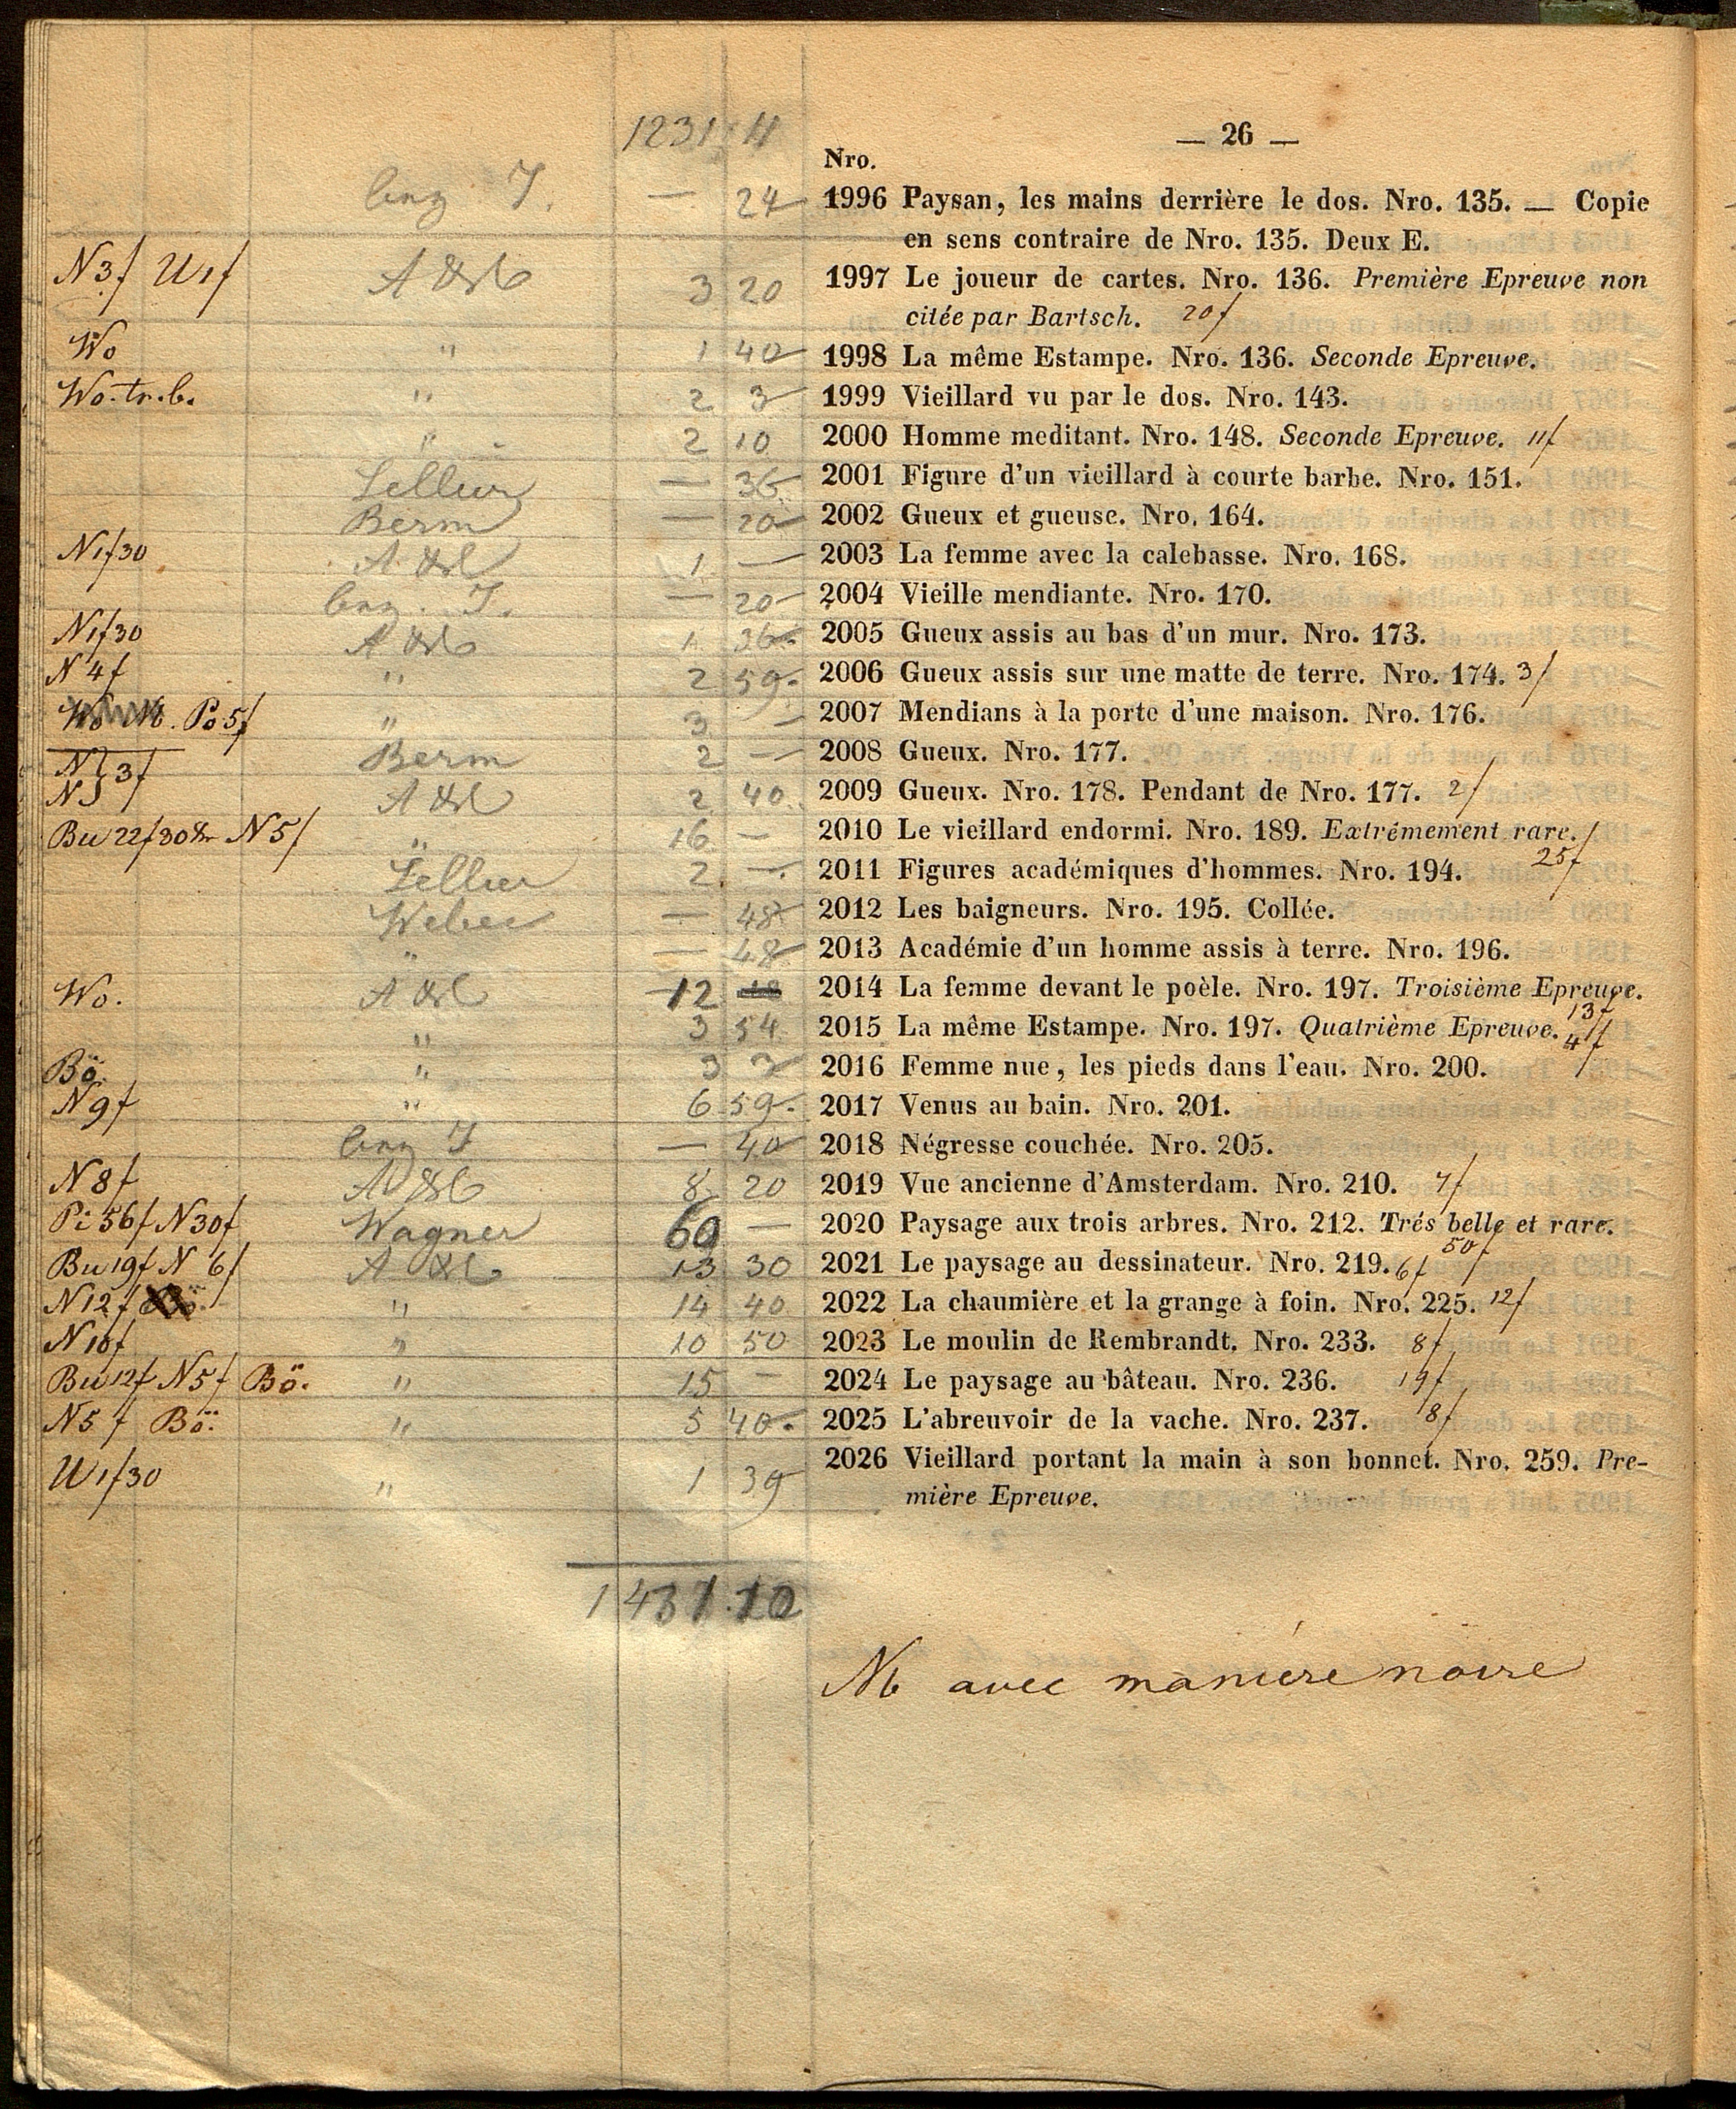 1231 4
— 26 —
Nro.
— 24 1996 Paysan, les mains derrière le dos. Nro. 135. — Copie
en sens contraire de Nro. 135. Deux E.
N3f U1f 3 20 1997 Le joueur de cartes. Nro. 136. Première Epreuve non
citée par Bartsch. 20f
Wo " 1 40 1998 La même Estampe. Nro. 136. Seconde Epreuve.
Wo. tr. b. " 2 3 1999 Vieillard vu par le dos. Nro. 143.
" 2 10 2000 Homme meditant. Nro. 148. Seconde Epreuve. 11f
— 36 2001 Figure d'un vieillard à courte barbe. Nro. 151.
Berm — 20 2002 Gueux et gueuse. Nro. 164.
N1f30 1 — 2003 La femme avec la calebasse. Nro. 168.
— 20 2004 Vieille mendiante. Nro. 170.
N1f30 1 36 2005 Gueux assis au bas d'un mur. Nro. 173.
N4f " 2 59 2006 Gueux assis sur une matte de terre. Nro. 174. 3f
Po 5f " 3 — 2007 Mendians à la porte d'une maison. Nro. 176.
N } 3f Berm 2 — 2008 Gueux. Nro. 177.
N 2 40 2009 Gueux. Nro. 178. Pendant de Nro. 177. 2f
Bu 22f30 N5f " 16 — 2010 Le vieillard endormi. Nro. 189. Extrêmement rare. 25f
2 — 2011 Figures académiques d'hommes. Nro. 194.
Weber — 48 2012 Les baigneurs. Nro. 195. Collée.
" — 48 2013 Académie d'un homme assis à terre. Nro. 196.
Wo. 12 2014 La femme devant le poèle. Nro. 197. Troisième Epreuve. 13f
" 3 54 2015 La même Estampe. Nro. 197. Quatrième Epreuve. 4f
Bö. " 3 3 2016 Femme nue, les pieds dans l'eau. Nro. 200.
N9f " 6 59 2017 Venus au bain. Nro. 201.
— 40 2018 Négresse couchée. Nro. 205.
N8f 8 20 2019 Vue ancienne d'Amsterdam. Nro. 210. 7f
Pi 56f N30f Wagner 60 — 2020 Paysage aux trois arbres. Nro. 212. Trés belle et rare. 50f
Bu 19f N 6f 13 30 2021 Le paysage au dessinateur. Nro. 219. 6f
N12f " 14 40 2022 La chaumière et la grange à foin. Nro. 225. 12f
N10f " 10 50 2023 Le moulin de Rembrandt. Nro. 233. 8f
Bu 12f N5f Bö. " 15 — 2024 Le paysage au bâteau. Nro. 236. 19f
N5f Bö. " 5 40 2025 L'abreuvoir de la vache. Nro. 237. 8f
U1f30 " 1 39 2026 Vieillard portant la main à son bonnet. Nro. 259. Pre-
mière Epreuve.
1437.10
Nb avec maniere noire